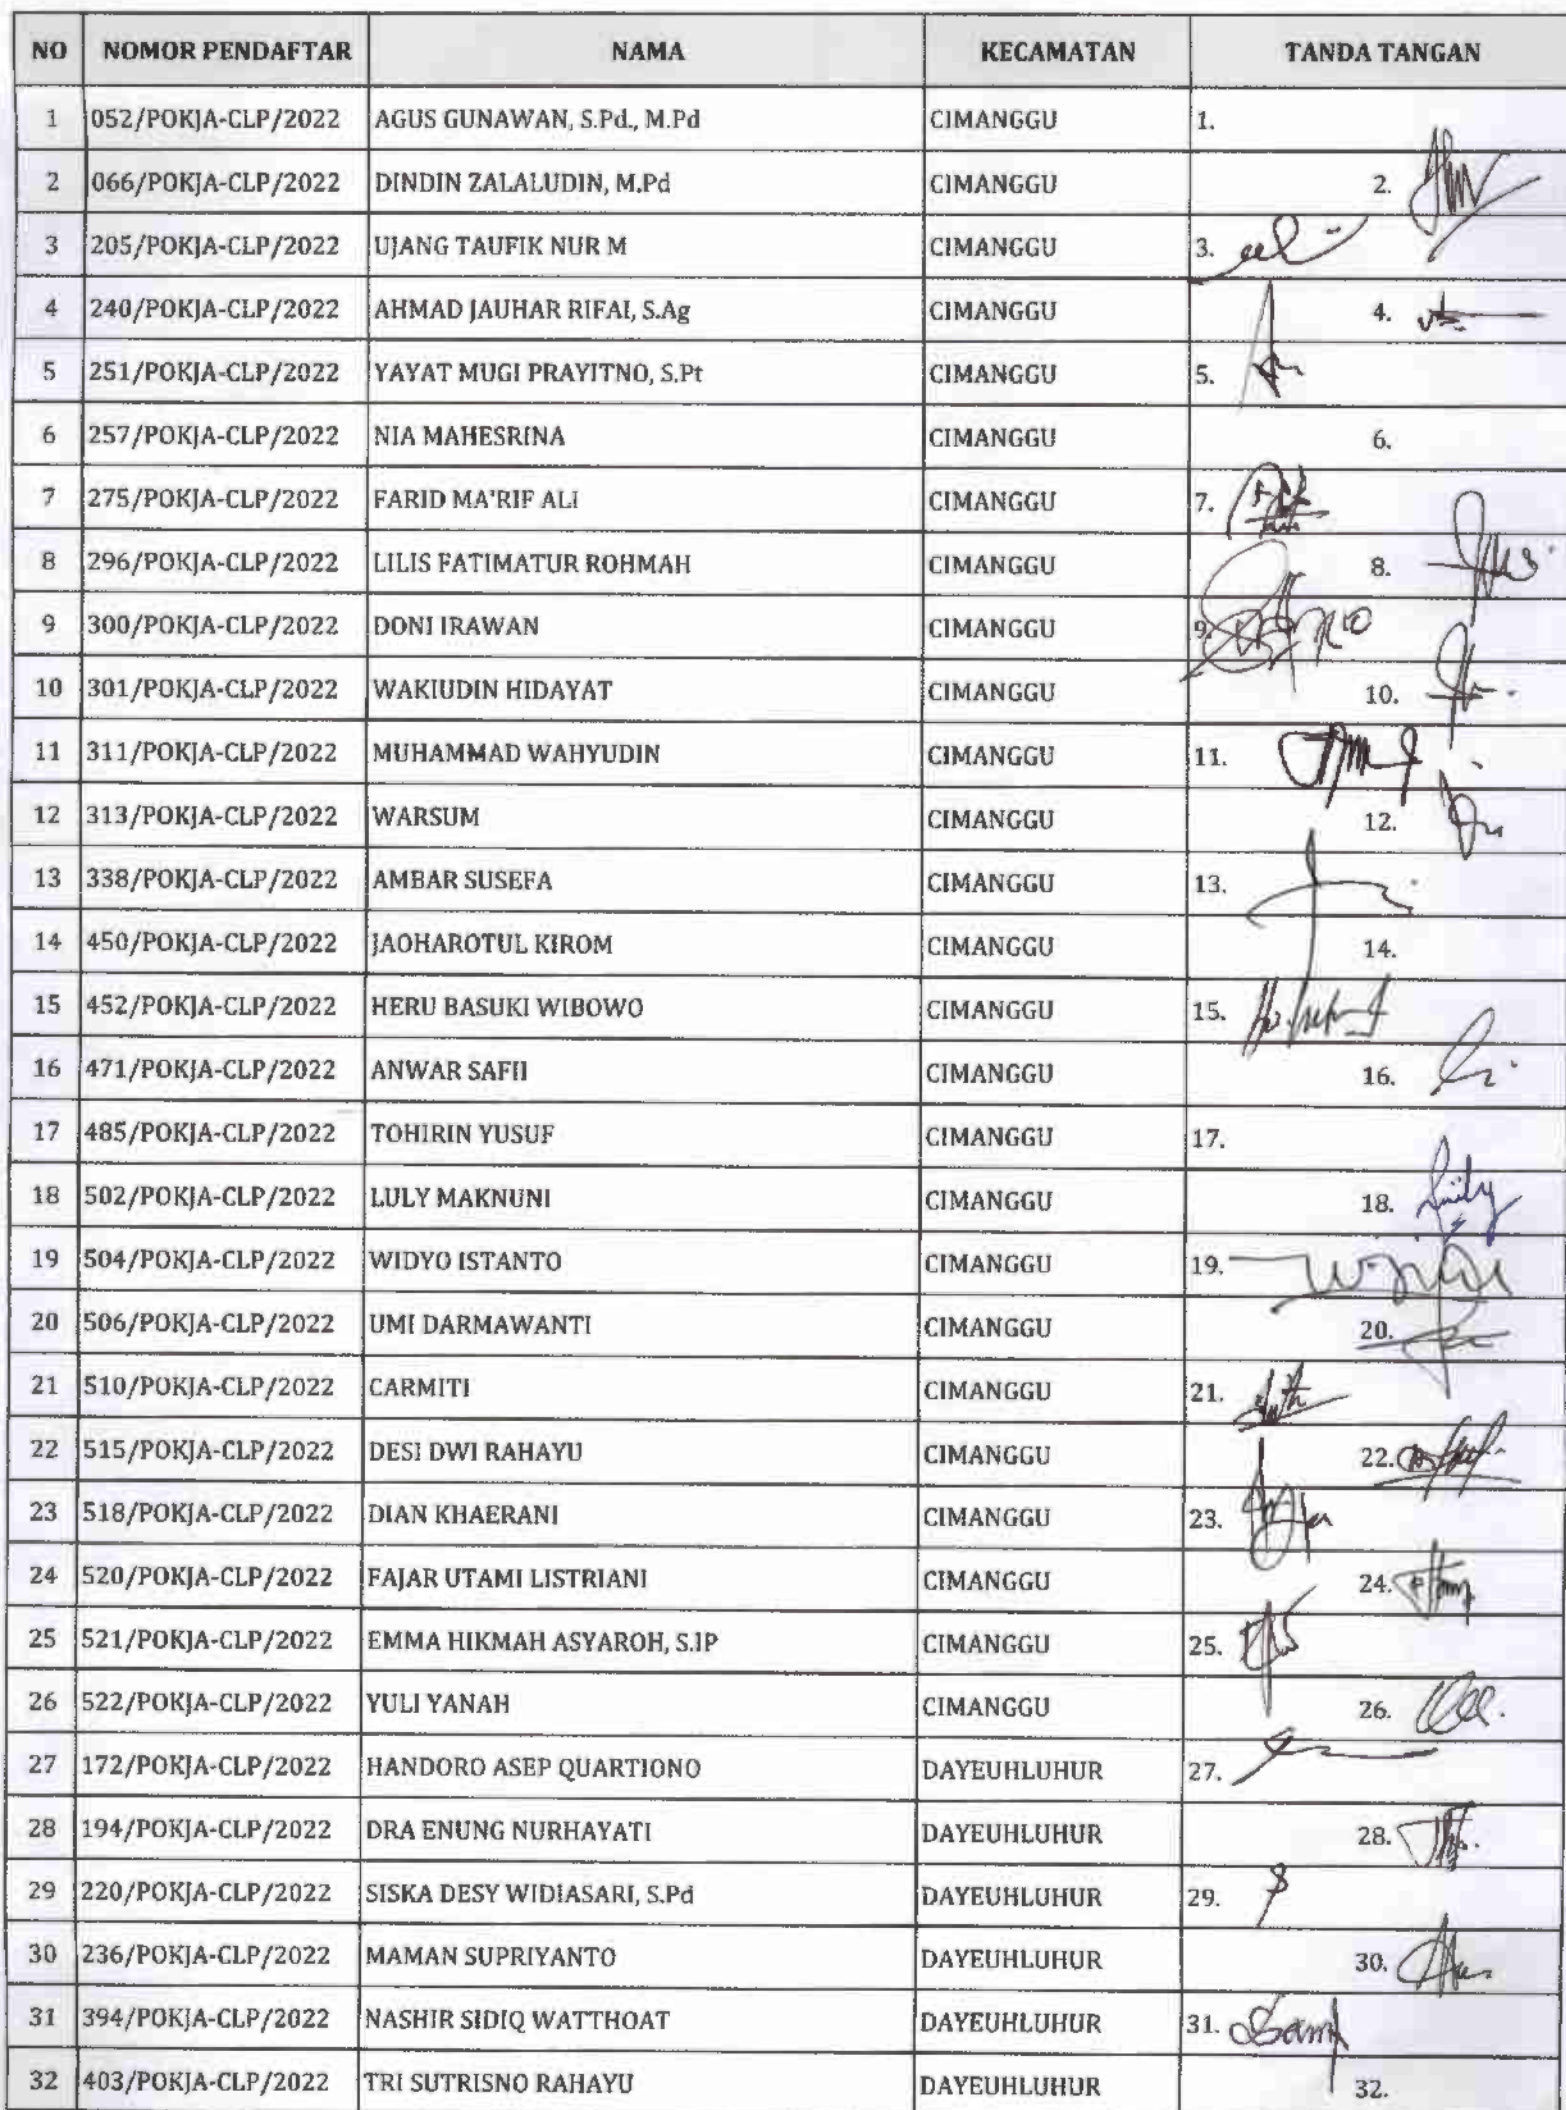 NO NOMOR PENDAFTAR NAMA KECAMATAN TANDA TANGAN
1 052/POKJA-CLP/2022 AGUS GUNAWAN, S.Pd., M.Pd CIMANGGU 1.
2 066/POKJA-CLP/2022 DINDIN ZALALUDIN, M.Pd CIMANGGU 2.
3 205/POKJA-CLP/2022 UJANG TAUFIK NUR M CIMANGGU 3.
4 240/POKJA-CLP/2022 AHMAD JAUHAR RIFAI, S.Ag CIMANGGU 4.
5 251/POKJA-CLP/2022 YAYAT MUGI PRAYITNO, S.Pt CIMANGGU 5.
6 257/POKJA-CLP/2022 NIA MAHESRINA CIMANGGU 6.
7 275/POKJA-CLP/2022 FARID MA'RIF ALI CIMANGGU 7.
8 296/POKJA-CLP/2022 LILIS FATIMATUR ROHMAH CIMANGGU 8.
9 300/POKJA-CLP/2022 DONI IRAWAN CIMANGGU 9.
10 301/POKJA-CLP/2022 WAKIUDIN HIDAYAT CIMANGGU 10.
11 311/POKJA-CLP/2022 MUHAMMAD WAHYUDIN CIMANGGU 11.
12 313/POKJA-CLP/2022 WARSUM CIMANGGU 12.
13 338/POKJA-CLP/2022 AMBAR SUSEFA CIMANGGU 13.
14 450/POKJA-CLP/2022 JAOHAROTUL KIROM CIMANGGU 14.
15 452/POKJA-CLP/2022 HERU BASUKI WIBOWO CIMANGGU 15.
16 471/POKJA-CLP/2022 ANWAR SAFII CIMANGGU 16.
17 485/POKJA-CLP/2022 TOHIRIN YUSUF CIMANGGU 17.
18 502/POKJA-CLP/2022 LULY MAKNUNI CIMANGGU 18.
19 504/POKJA-CLP/2022 WIDYO ISTANTO CIMANGGU 19.
20 506/POKJA-CLP/2022 UMI DARMAWANTI CIMANGGU 20.
21 510/POKJA-CLP/2022 CARMITI CIMANGGU 21.
22 515/POKJA-CLP/2022 DESI DWI RAHAYU CIMANGGU 22.
23 518/POKJA-CLP/2022 DIAN KHAERANI CIMANGGU 23.
24 520/POKJA-CLP/2022 FAJAR UTAMI LISTRIANI CIMANGGU 24.
25 521/POKJA-CLP/2022 EMMA HIKMAH ASYAROH, S.IP CIMANGGU 25.
26 522/POKJA-CLP/2022 YULI YANAH CIMANGGU 26.
27 172/POKJA-CLP/2022 HANDORO ASEP QUARTIONO DAYEUHLUHUR 27.
28 194/POKJA-CLP/2022 DRA ENUNG NURHAYATI DAYEUHLUHUR 28.
29 220/POKJA-CLP/2022 SISKA DESY WIDIASARI, S.Pd DAYEUHLUHUR 29.
30 236/POKJA-CLP/2022 MAMAN SUPRIYANTO DAYEUHLUHUR 30.
31 394/POKJA-CLP/2022 NASHIR SIDIQ WATTHOAT DAYEUHLUHUR 31.
32 403/POKJA-CLP/2022 TRI SUTRISNO RAHAYU DAYEUHLUHUR 32.